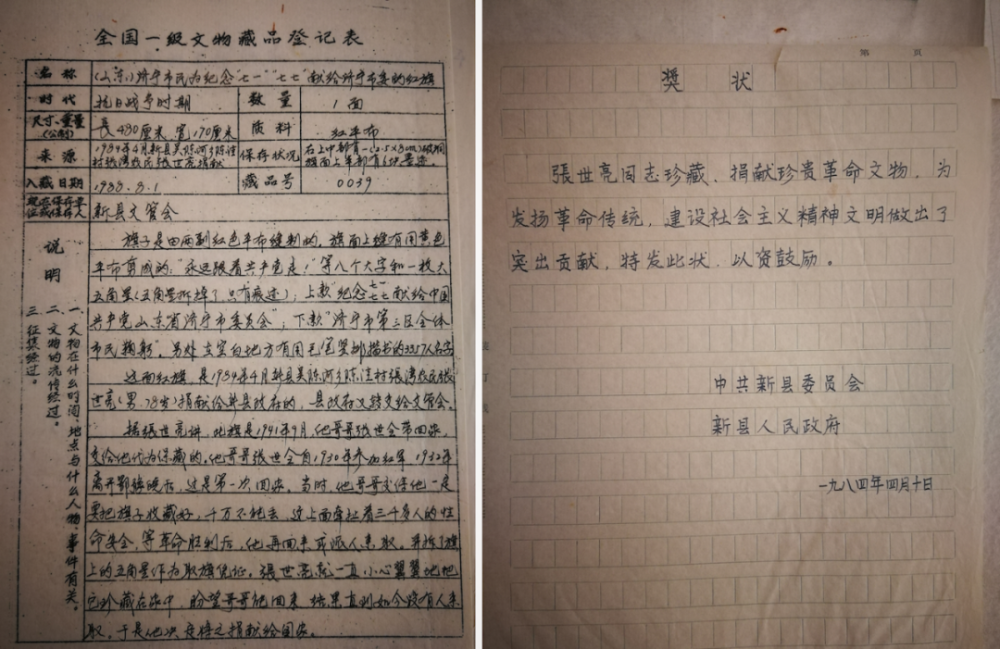 全国一级文物藏品登记表
名称 (山东)济宁市民为纪念"七一""七七"献给济宁市委的红旗
时代 抗日战争时期 数量 1面
尺寸、重量(公制) 長480厘米 宽170厘米 质料 红平布
来源 1984年4月新县吴陈河乡陈洼村张湾农民张世亮捐献 保存状况 右上中部有一(2.5×8cm)破洞 旗面上半部有6块墨迹。
入藏日期 1988.8.1 藏品号 0039
现在保存单位或保存人 新县文管会
说明
一、文物在什么时间、地点与什么人物、事件有关。
二、文物的流传经过。
三、征集经过。
旗子是由两副红色平布缝制的，旗面上缝有用黄色
平布剪成的："永远跟着共产党走！"等八个大字和一枚大
五角星(五角星拆掉了只有痕迹)；上款"纪念七一七七献给中国
共产党山东省济宁市委员会"；下款"济宁市第三区全体
市民鞠躬"。另外在空白地方有用毛笔竖排描书的3357人名字
这面红旗，是1984年4月新县吴陈河乡陈洼村张湾农民张
世亮(男、78岁)捐献给新县政府的，县政府又转交给文管会。
据张世亮讲，此旗是1941年9月，他哥哥张世全第四次
交给他代为保藏的。他哥哥张世全自1930年参加红军 1932年
离开鄂豫皖后，这是第一次回家。当时，他哥哥交待他一定
要把旗子收藏好，千万不能丢，这上面牵扯着三千多人的性
命安全，等革命胜利后，他再回来或派人来取。并拆了旗
上的五角星作为取旗凭证。張世亮就一直小心翼翼地把
它珍藏在家中，盼望哥哥能回来，结果直到如今没有人来
取，于是他决定将之捐献给国家。
第 页
奖状
張世亮同志珍藏、捐献珍贵革命文物，为
发扬革命传统，建设社会主义精神文明做出了
突出贡献，特发此状，以资鼓励。
中共新县委员会
新县人民政府
一九八四年四月十日